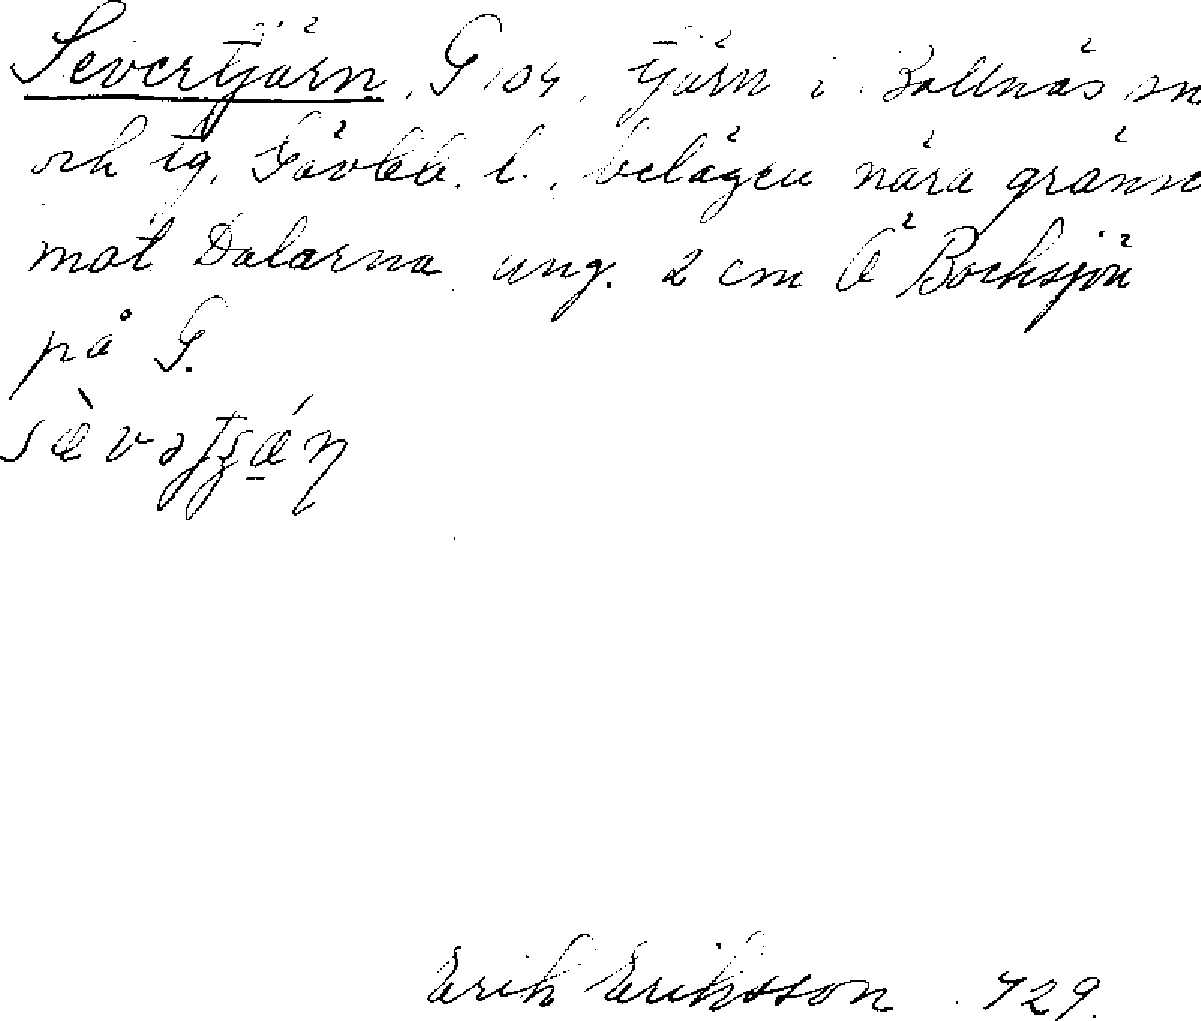 Severtjärn, G 104, tjärn i Bollnäs sn
och tg, Gävleb. l., belägen nära gränsen
mot Dalarna ung. 2 cm Ö Bocksjön
på G.
sævətʂǽ̠ɳ
Erik Eriksson. 729.